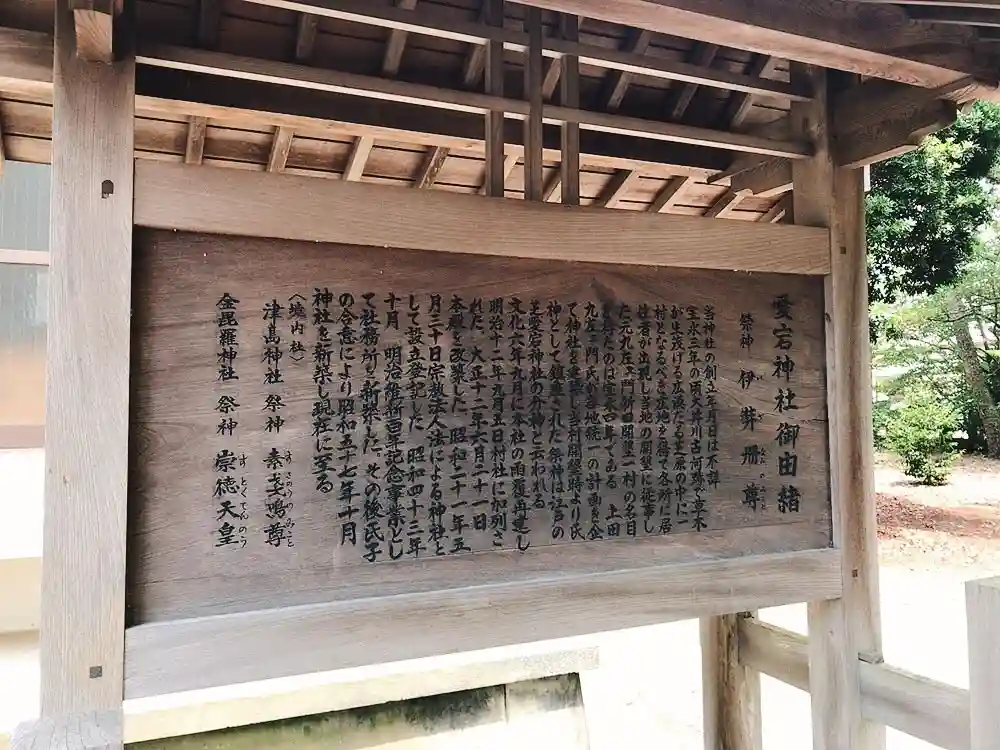 愛宕神社御由緒
祭神 伊弉册尊
当神社の創立年月日は不詳
宝永三年の雨大井川古河跡で草木
が生茂げる広漠たる芝原の中に一
村となるべき土地を見務て各所に居
住者が出現し当地の開墾に従事し
た元九左ェ門新田開墾一村の名目
を得たのは宝永六年である 上田
九左ェ門氏が当地統一の計画を企
て神社を建築し当村開墾時より氏
神として鎮座された祭神は江戸の
芝愛宕神社の分神と云われる
文化六年九月に本社の雨覆再建し
明治十二年九月五日村社に加列さ
れた、大正十二年六月二十一日
本殿を改築した 昭和二十一年五
月三十日宗教法人法による神社と
して設立登記した 昭和四十三年
十月 明治維新百年記念事業とし
て社務所を新築した、その後氏子
の合意により昭和五十七年十月
神社を新築し現在に至る
〈境内社〉
津島神社 祭神 素戔嗚尊 すさのうのみこと
金毘羅神社 祭神 崇徳天皇 すとくてんのう